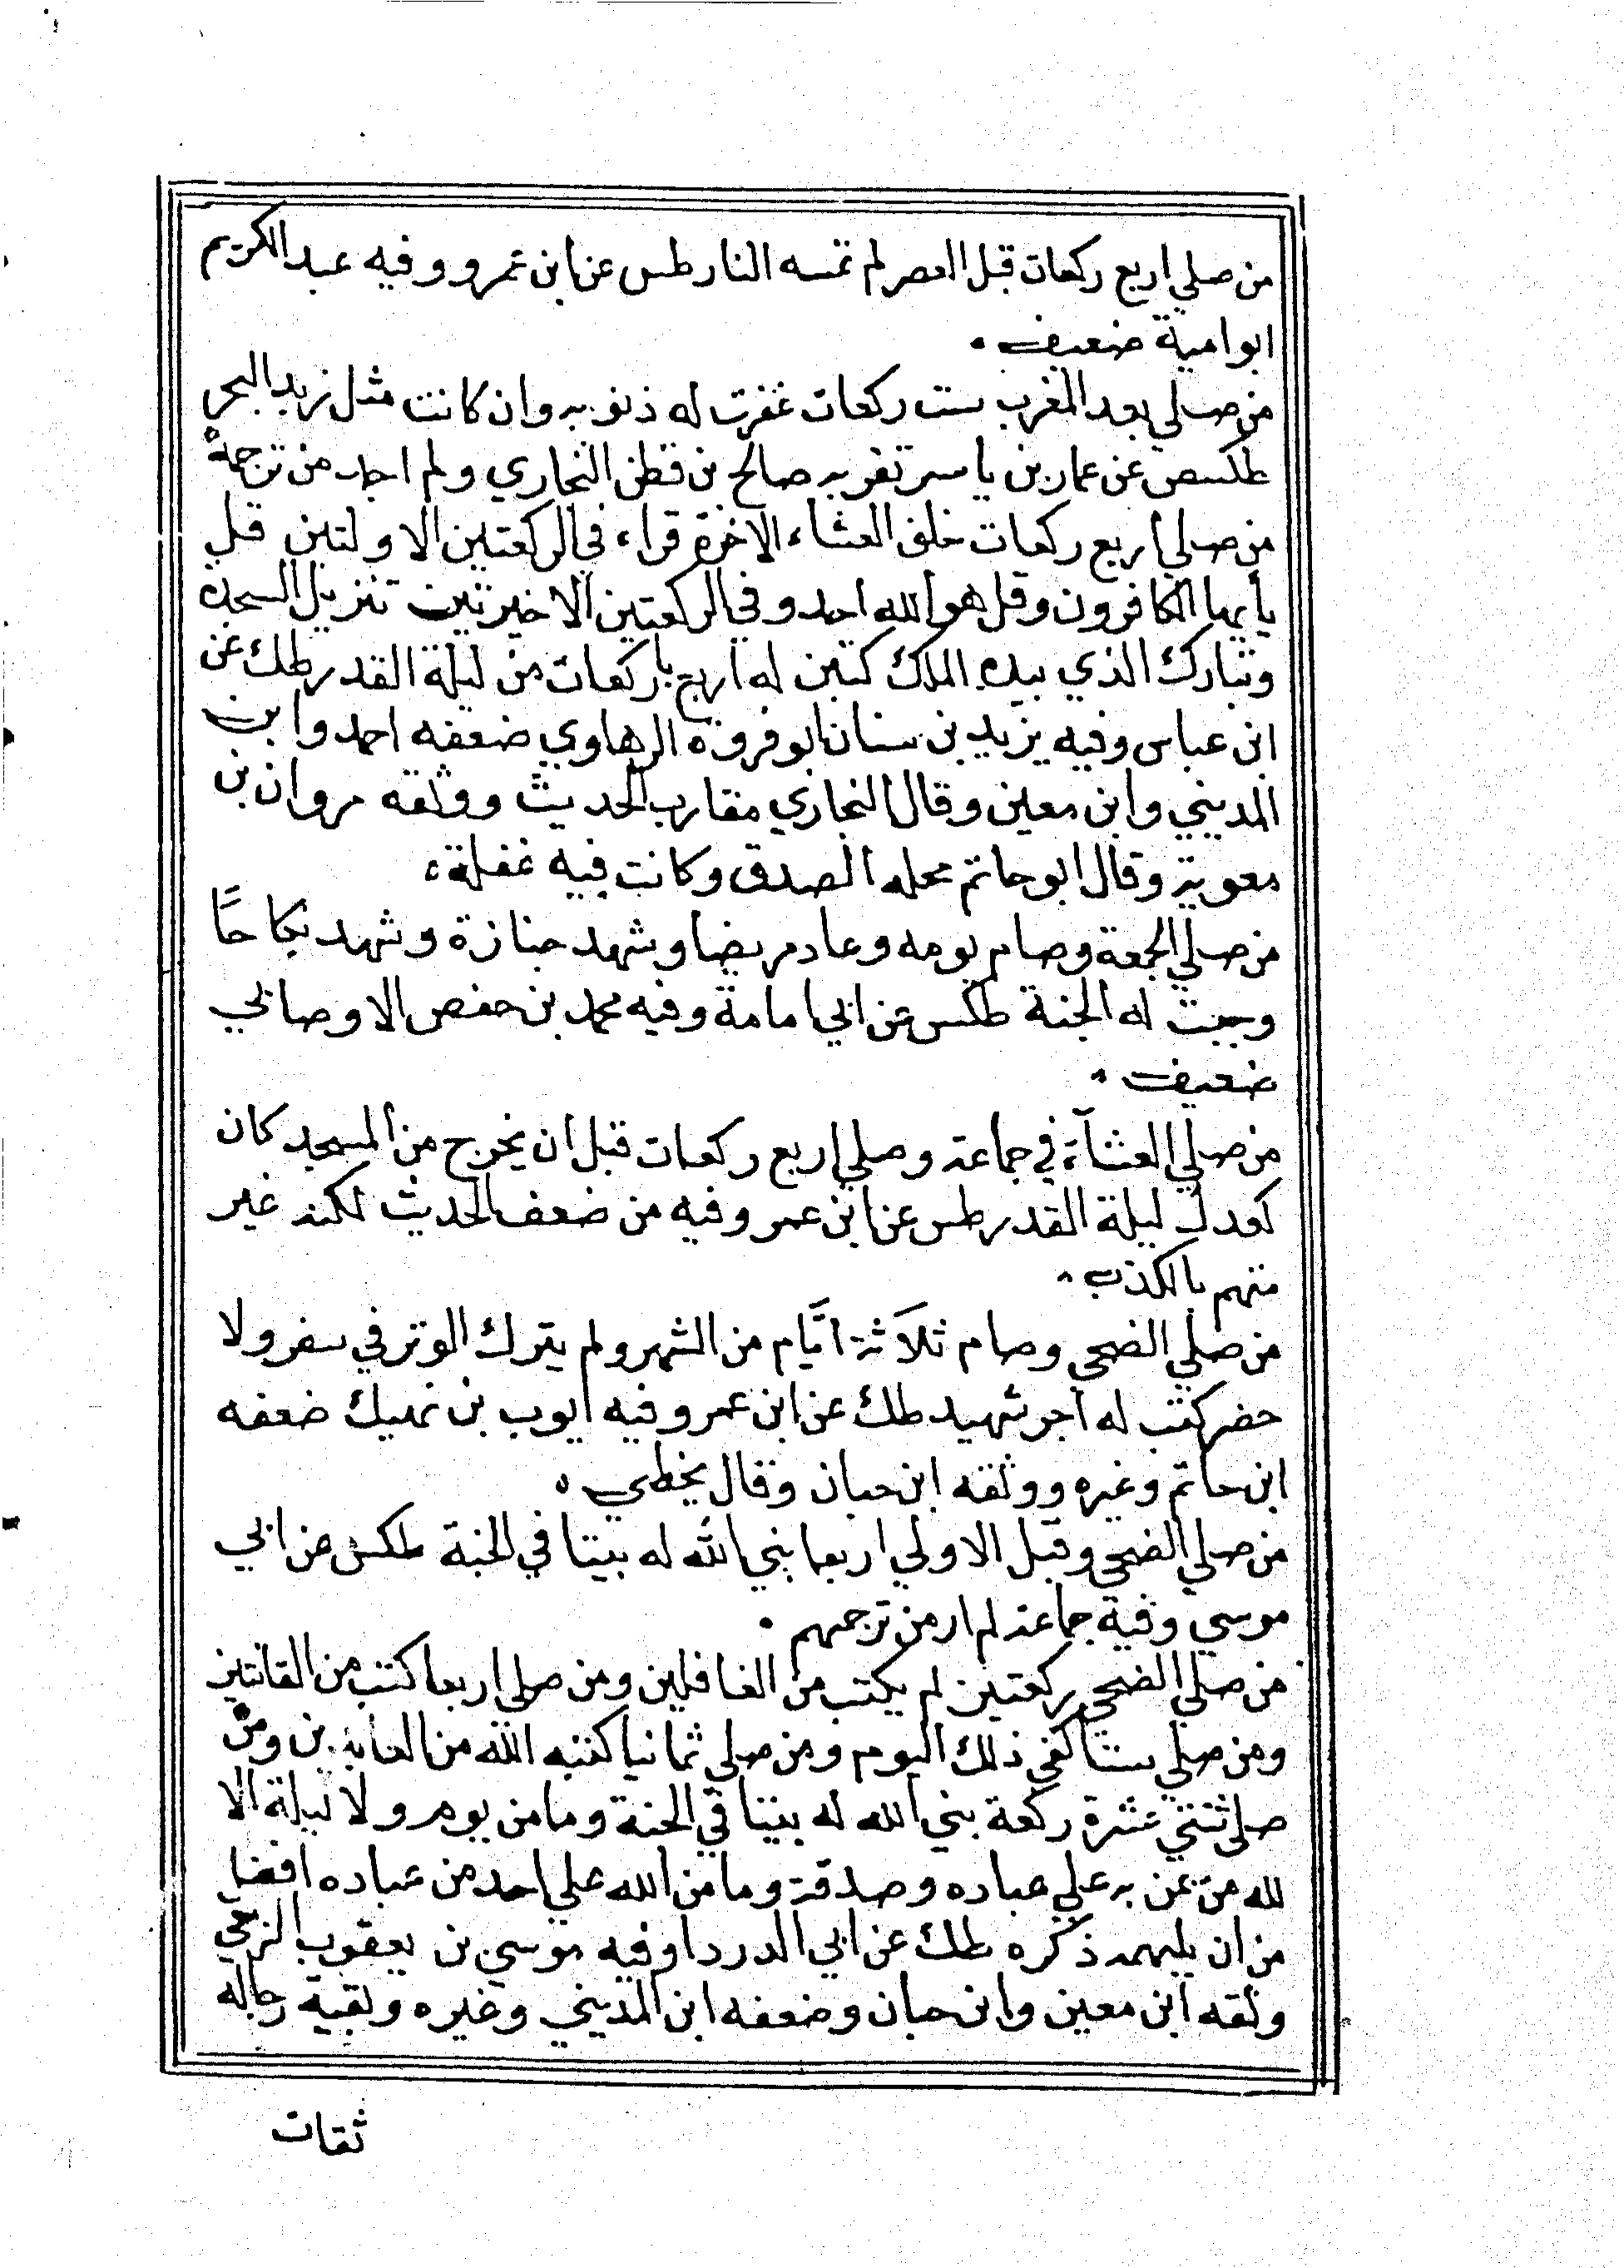 من صلي اربع ركعات قبل العصر لم تمسه النار طس عن ابن عمرو وفيه عبد الكريم
ابو امية ضعيف
من صلي بعد المغرب ست ركعات غفرت له ذنوبه وان كانت مثل زبد البحر
طكسص عن عمار بن ياسر تفرد به صالح بن قطن البخاري ولم اجد من ترجمه
من صلي أربع ركعات خلف العشاء الاخرة قراء في الركعتين الاولتين قل
يأيها الكافرون وقل هو الله احد وفي الركعتين الاخيرتين تنزيل السجدة
وتبارك الذي بيده الملك كتبن له اربع ركعات من ليلة القدر طك عن
ابن عباس وفيه يزيد بن سنان ابو فروة الرهاوي ضعفه احمد وابن
المديني وابن معين وقال البخاري مقارب الحديث ووثقه مروان بن
معوية وقال ابو حاتم محله الصدق وكانت فيه غفلة
من صلي الجمعة وصام يومه وعاد مريضا وشهد جنازة وشهد نكاحًا
وجبت له الجنة طكس عن ابي امامة وفيه محمد بن حفص الاوصابي
ضعيف
من صلي العشآء في جماعة وصلي اربع ركعات قبل ان يخرج من المسجد كان
كعدل ليلة القدر طس عن ابن عمر وفيه من ضعف الحديث لكنه غير
متهم بالكذب
من صلي الضحي وصام ثلاثة ايّام من الشهر ولم يترك الوتر في سفر ولا
حضر كتب له اجر شهيد طك عن ابن عمر وفيه ايوب بن نهيك ضعفه
ابن حاتم وغيره ووثقه ابن حبان وقال يخطي
من صلي الضحي وقبل الاولي اربعا بني الله له بيتا في الجنة طكس عن ابي
موسي وفية جماعة لم ار من ترجمهم
من صلي الضحي ركعتين لم يكتب من الغافلين ومن صلي اربعا كتب من القانتين
ومن صلي ستا كفي ذلك اليوم ومن صلي ثمانيا كتبه الله من العابدين ومن
صلي ثنتي عشرة ركعة بني الله له بيتا في الجنة وما من يوم ولا ليلة الا
لله من يمن به علي عباده وصدقة وما من الله علي احد من عباده افضل
من ان يلهمه ذكره طك عن ابي الدردا وفيه موسي بن يعقوب الزمعي
وثقه ابن معين وابن حبان وضعفه ابن المديني وغيره وبقية رجاله
ثقات